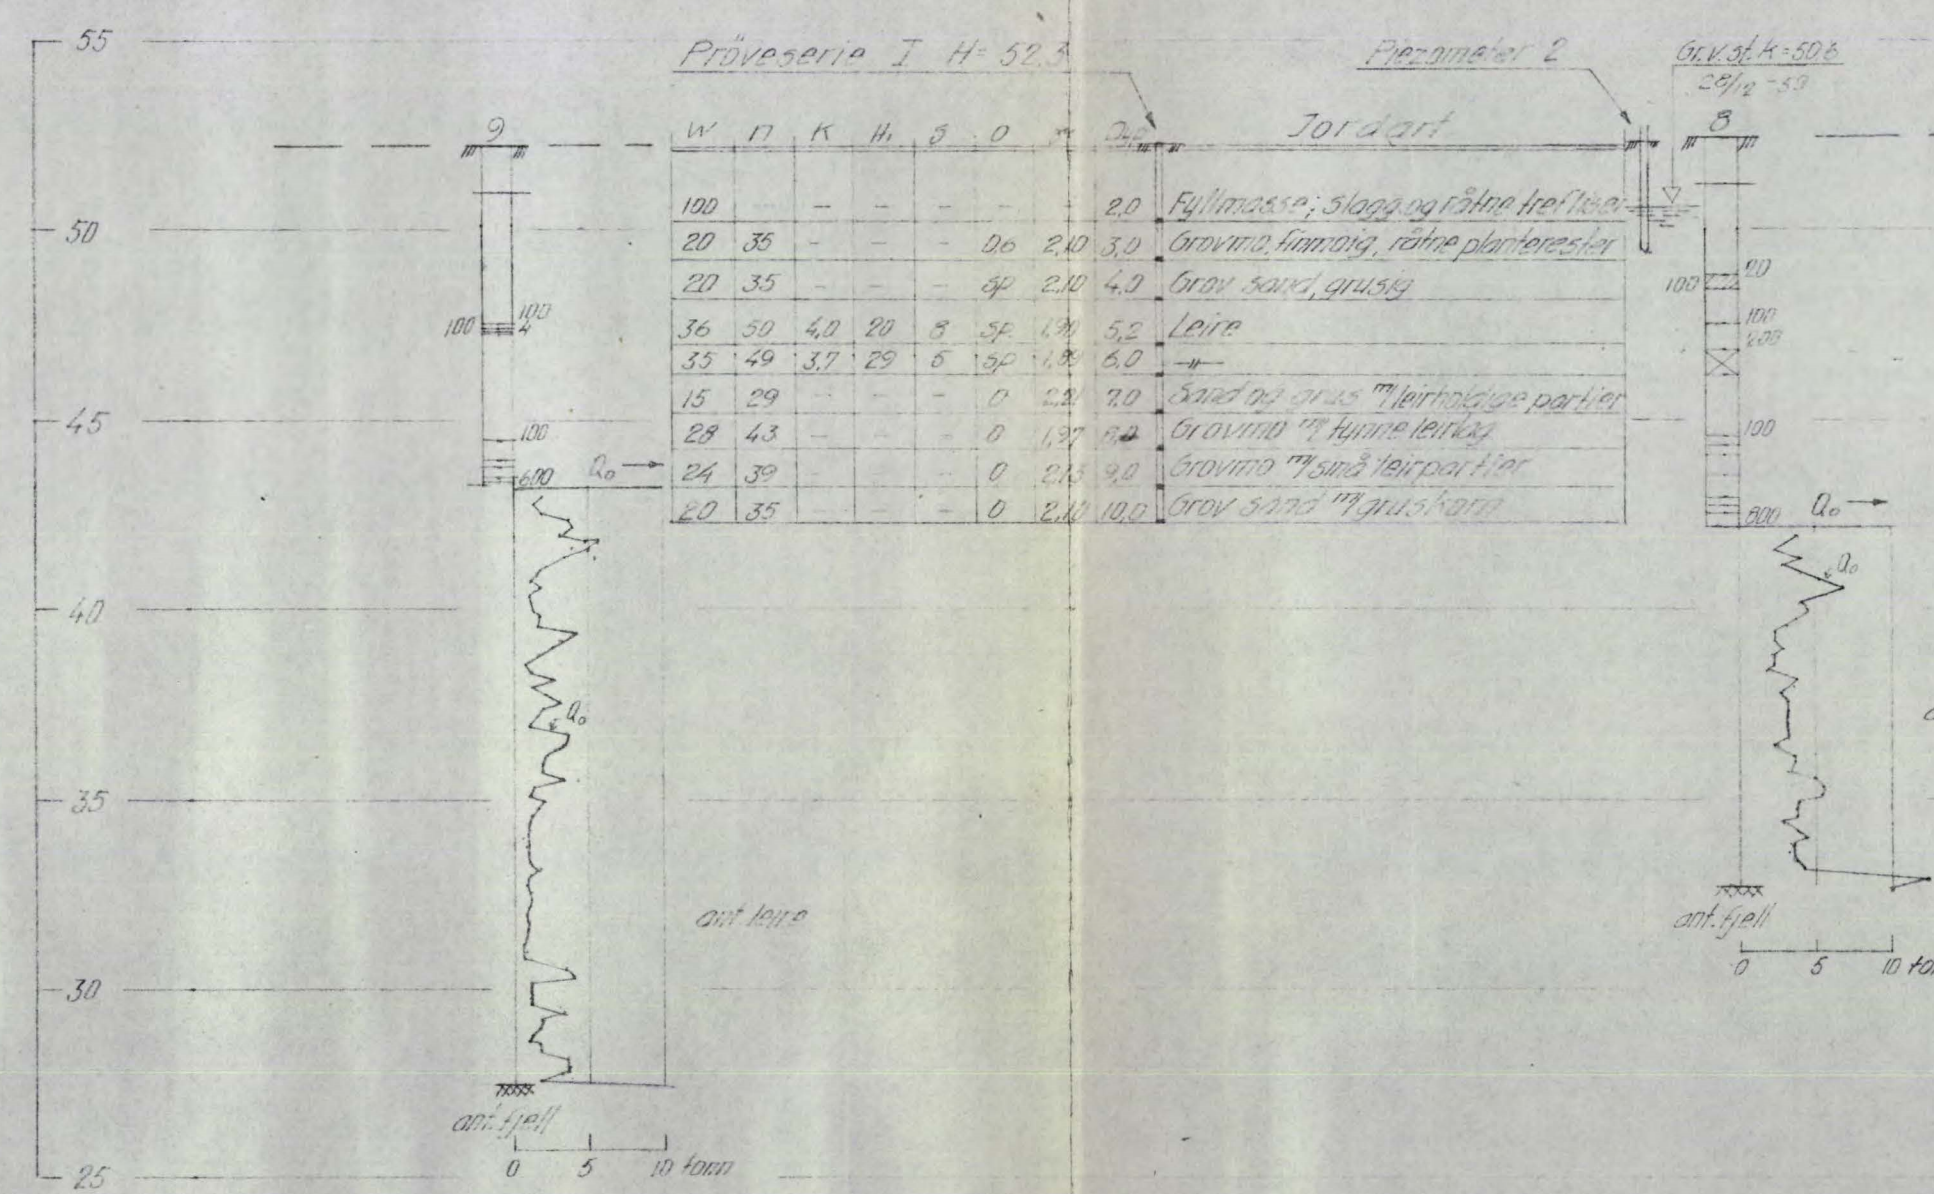 55
50
45
40
35
30
25
Pröveserie I H= 52,3
Piezometer 2
Gr.v.st. K=50,6
28/12 -59
W n K H₁ S O Jordart
100 - - - - - 2,0 Fyllmasse; slagg og råtne trefliser
20 35 - - - 0,6 2,10 3,0 Grovmo, finmoig, råtne planterester
20 35 - - - sp 2,10 4,0 Grov sand, grusig
36 50 4,0 20 8 sp. 1,90 5,2 Leire
35 49 3,7 29 6 sp 1,89 6,0 -"-
15 29 - - - 0 2,21 7,0 Sand og grus m/leirholdige partier
28 43 - - - 0 1,97 8,0 Grovmo m/ tynne leirlag
24 39 - - - 0 2,13 9,0 Grovmo m/små leirpartier
20 35 - - - 0 2,10 10,0 Grov sand m/gruskorn
9
100
100
4
100
600
Q₀
Q₀
ant. leire
ant. fjell
0 5 10 tonn
8
20
100
100
200
100
800
Q₀
Q₀
ant. fjell
0 5 10